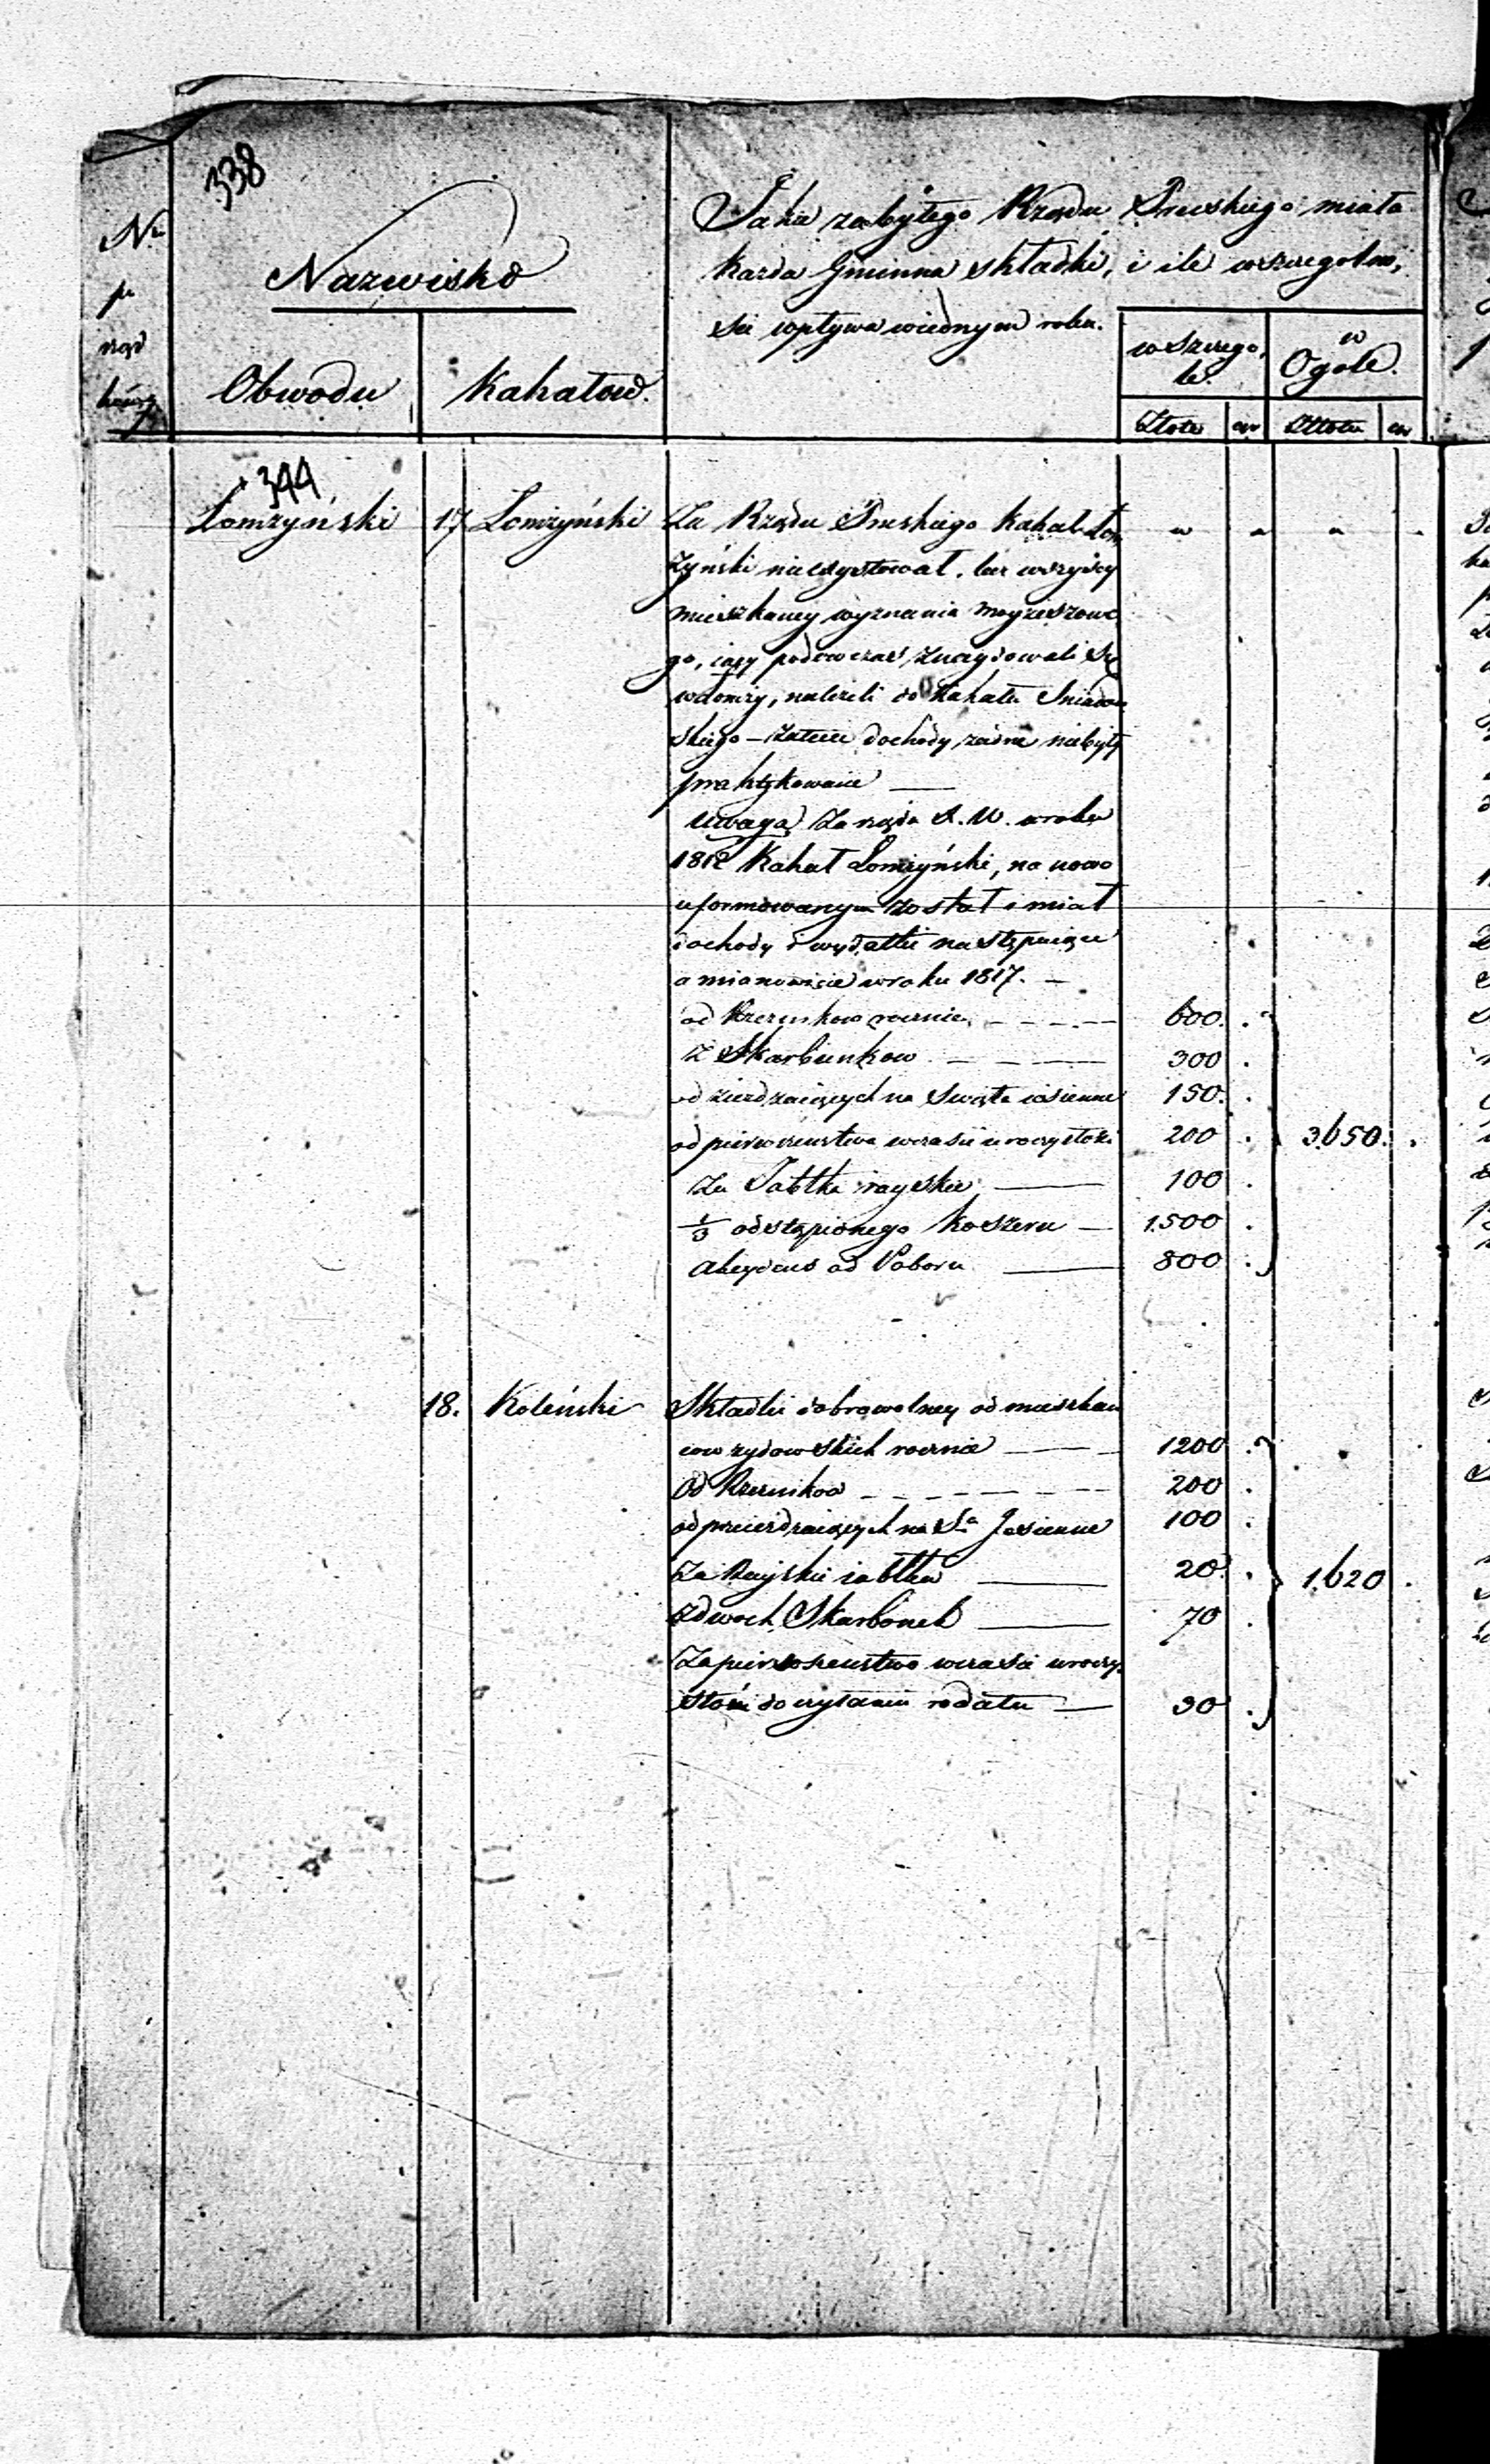 338
Nr
po
rząd
Nazwisko
Obwodu
Kahałow.
Jakie za byłego Rządu Pruskiego miała
każda Gminna składki, i ile wszczegolno,
sci wpływa wiednym roku.
w szczego,
le.
w
Ogole.
Złote
gr
Złote
gr
344
Łomżyński
17
Łomżyński
Za Rządu Pruskiego Kahał Łom
żyński nieexystował. lecz wszyscy
mieszkancy wyznania moyżeszowe
go, iacy podowczas znaydowali się
w Łomży, należeli do Kahału Sniadow
skiego – zatem dochody żadne niebyły
praktykowane —
Uwaga za rządu X. W. w roku
1812 Kahał Łomżyński, na nowo
uformowanym został i miał
dochody i wydatki następuiące
a mianowicie w roku 1817. —
od Rzeznikow rocznie 600.
z Skarbunkow 300
od ziezdzaiących na Swięta iesienne 150.
od pierwszeństwa wczasie uroczystosci 200
Za Jabłka rayskie 100
1/3 odstąpionego koszeru 1500
od Poboru 800
3650.
18.
Koleński
Składki dobrowolney od mieszkan
cow żydowskich rocznie 1200
Od Rzeznikow 200
od przeiezdzaiących na Sa Jesienne 100
Za Rajskie iabłka 20
z dwoch Skarbonek 70
Za pierwszeństwo wczasie uroczy
stosci do czytania rodału 30
1.620